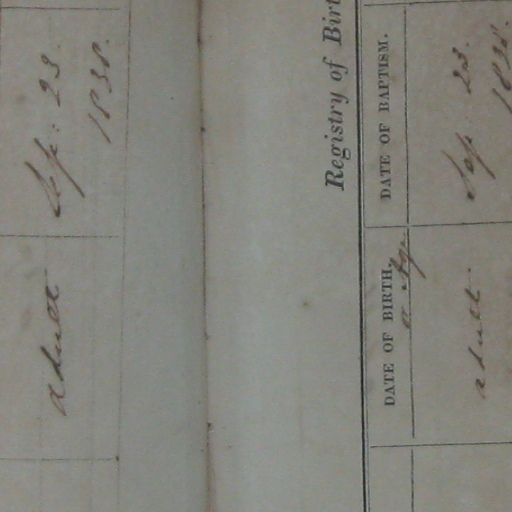 adult Sep: 23.
1838.
Registry of Birt
DATE OF BIRTH. DATE OF BAPTISM.
or Age
adult Sep 23.
1838.